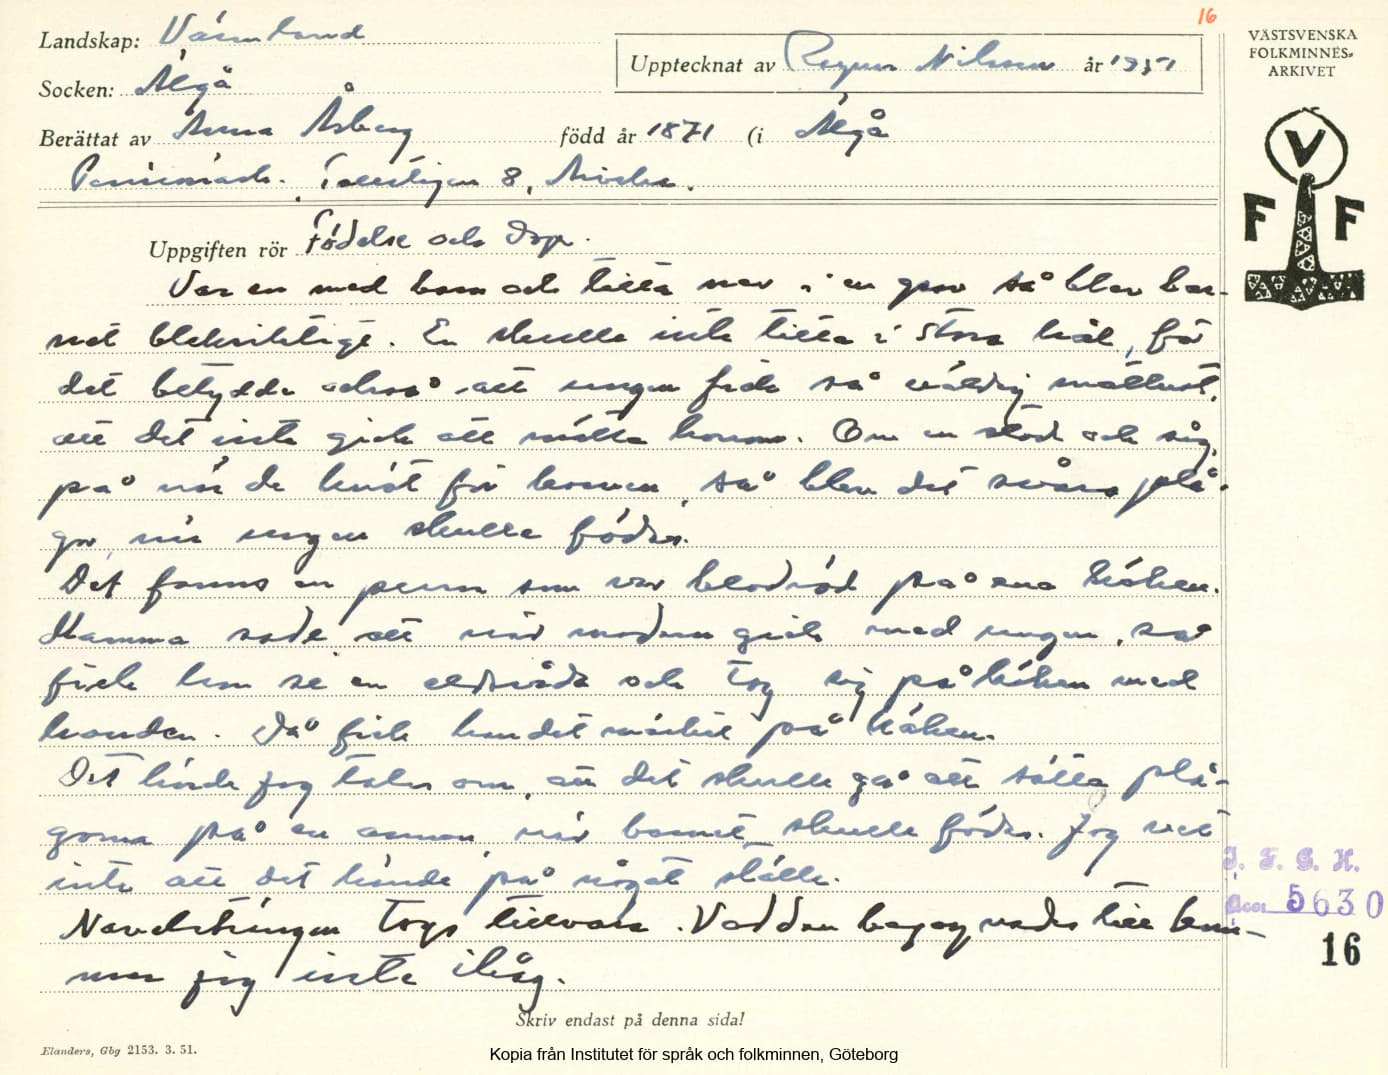 16
Landskap: Värmland
VÄSTSVENSKA
FOLKMINNES-
ARKIVET
Upptecknat av Ragnar Nilsson år 1951
Socken: Älgå
Berättat av Anna Åsberg född år 1871 (i Älgå
8, Arvika.
V
F F
Uppgiften rör Födelse och dop.
Var en med barn och titta ner i en grav så blev bar-
net bleksiktigt. En skulle inte titta i stora hål, för
det betydde också att ungen fick så väldig matlust,
att det inte gick att mätta honom. Om en stod och såg
på när de knöt för korven, så blev det svåra plå-
gor, när ungen skulle födas.
Det fanns en person som var blodröd på ena käken.
Mamma sade att när modern gick med ungen, så
fick hon se en eldsvåda och tog sig på käken med
handen. Då fick han det märket på käken.
Det hörde jag talas om, att det skulle gå att sätta plå-
gorna på en annan, när barnet skulle födas. Jag vet
inte att det hände på något ställe.
Navelsträngen togs tillvara. Vad den begagnades till kom-
mer jag inte ihåg.
I. F. G. H.
Acc. 5630
16
Skriv endast på denna sida!
Elanders, Gbg 2153. 3. 51.
Kopia från Institutet för språk och folkminnen, Göteborg